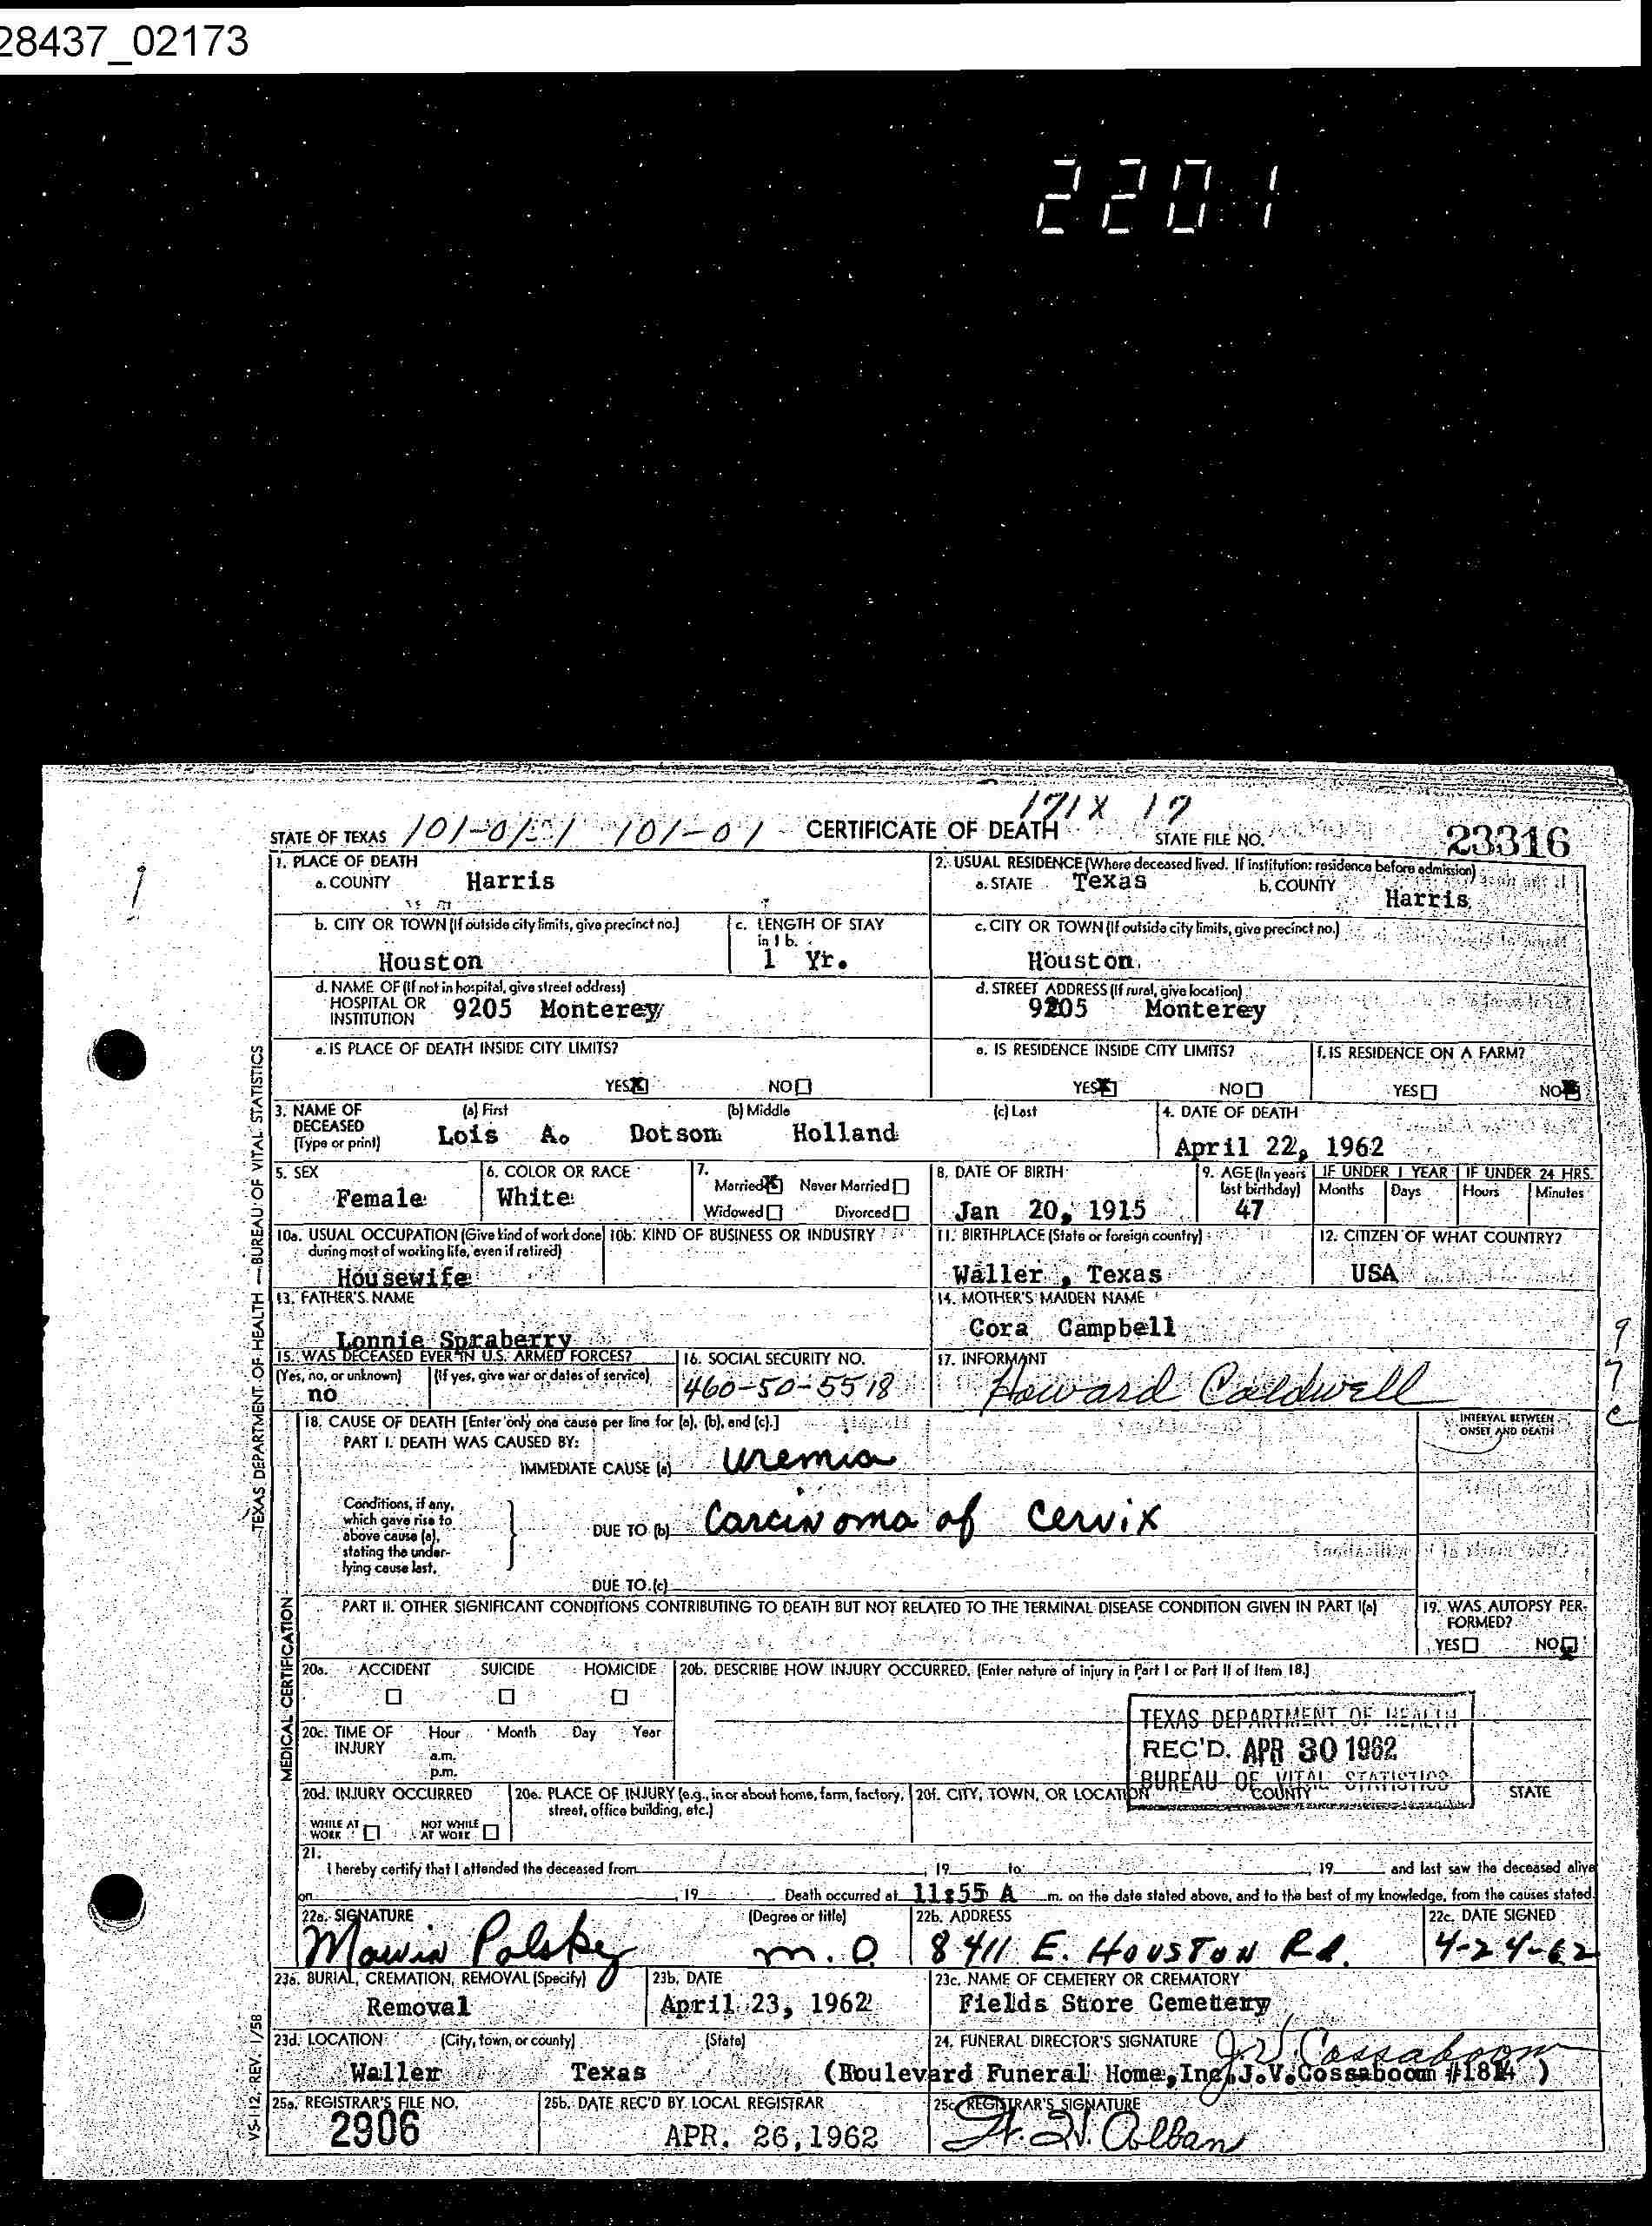 28437_02173
2201
171X 17
STATE OF TEXAS 101-01-1 101-01 CERTIFICATE OF DEATH STATE FILE NO. 23316
1. PLACE OF DEATH
a. COUNTY Harris
2. USUAL RESIDENCE (Where deceased lived. If institution: residence before admission)
a. STATE Texas b. COUNTY Harris
b. CITY OR TOWN (If outside city limits, give precinct no.) Houston
c. LENGTH OF STAY in 1 b. 1 Yr.
c. CITY OR TOWN (If outside city limits, give precinct no.) Houston
d. NAME OF (If not in hospital, give street address) HOSPITAL OR INSTITUTION 9205 Monterey
d. STREET ADDRESS (If rural, give location) 9205 Monterey
e. IS PLACE OF DEATH INSIDE CITY LIMITS? YES X NO
e. IS RESIDENCE INSIDE CITY LIMITS? YES X NO
f. IS RESIDENCE ON A FARM? YES NO X
3. NAME OF DECEASED (Type or print) (a) First (b) Middle (c) Last
Lois A. Dotson Holland
4. DATE OF DEATH April 22, 1962
5. SEX Female
6. COLOR OR RACE White
7. Married X Never Married Widowed Divorced
8. DATE OF BIRTH Jan 20, 1915
9. AGE (In years last birthday) 47
IF UNDER 1 YEAR Months Days
IF UNDER 24 HRS. Hours Minutes
10a. USUAL OCCUPATION (Give kind of work done during most of working life, even if retired) Housewife
10b. KIND OF BUSINESS OR INDUSTRY
11. BIRTHPLACE (State or foreign country) Waller, Texas
12. CITIZEN OF WHAT COUNTRY? USA
13. FATHER'S NAME Lonnie Spraberry
14. MOTHER'S MAIDEN NAME Cora Campbell
15. WAS DECEASED EVER IN U.S. ARMED FORCES? (Yes, no, or unknown) (If yes, give war or dates of service) no
16. SOCIAL SECURITY NO. 460-50-5518
17. INFORMANT Howard Caldwell
18. CAUSE OF DEATH [Enter only one cause per line for (a), (b), and (c).]
INTERVAL BETWEEN ONSET AND DEATH
PART I. DEATH WAS CAUSED BY:
IMMEDIATE CAUSE (a) Uremia
Conditions, if any, which gave rise to above cause (a), stating the underlying cause last.
DUE TO (b) Carcinoma of Cervix
DUE TO (c)
PART II. OTHER SIGNIFICANT CONDITIONS CONTRIBUTING TO DEATH BUT NOT RELATED TO THE TERMINAL DISEASE CONDITION GIVEN IN PART I(a)
19. WAS AUTOPSY PERFORMED? YES NO X
20a. ACCIDENT SUICIDE HOMICIDE
20b. DESCRIBE HOW INJURY OCCURRED. (Enter nature of injury in Part I or Part II of Item 18.)
20c. TIME OF INJURY Hour Month Day Year a.m. p.m.
TEXAS DEPARTMENT OF HEALTH
REC'D. APR 30 1962
BUREAU OF VITAL STATISTICS
20d. INJURY OCCURRED WHILE AT WORK NOT WHILE AT WORK
20e. PLACE OF INJURY (e.g., in or about home, farm, factory, street, office building, etc.)
20f. CITY, TOWN, OR LOCATION COUNTY STATE
21. I hereby certify that I attended the deceased from 19 to 19 and last saw the deceased alive
on 19 Death occurred at 11:55 A m. on the date stated above, and to the best of my knowledge, from the causes stated.
22a. SIGNATURE (Degree or title) Marvin Polsky M.D.
22b. ADDRESS 8411 E. HOUSTON Rd.
22c. DATE SIGNED 4-24-62
23a. BURIAL, CREMATION, REMOVAL (Specify) Removal
23b. DATE April 23, 1962
23c. NAME OF CEMETERY OR CREMATORY Fields Store Cemetery
23d. LOCATION (City, town, or county) (State) Waller Texas
24. FUNERAL DIRECTOR'S SIGNATURE J.V. Cossaboom
(Boulevard Funeral Home, Inc. J.V. Cossaboom #1814)
25a. REGISTRAR'S FILE NO. 2906
25b. DATE REC'D BY LOCAL REGISTRAR APR. 26, 1962
25c. REGISTRAR'S SIGNATURE
VS-112, REV. 1/58
TEXAS DEPARTMENT OF HEALTH — BUREAU OF VITAL STATISTICS
MEDICAL CERTIFICATION